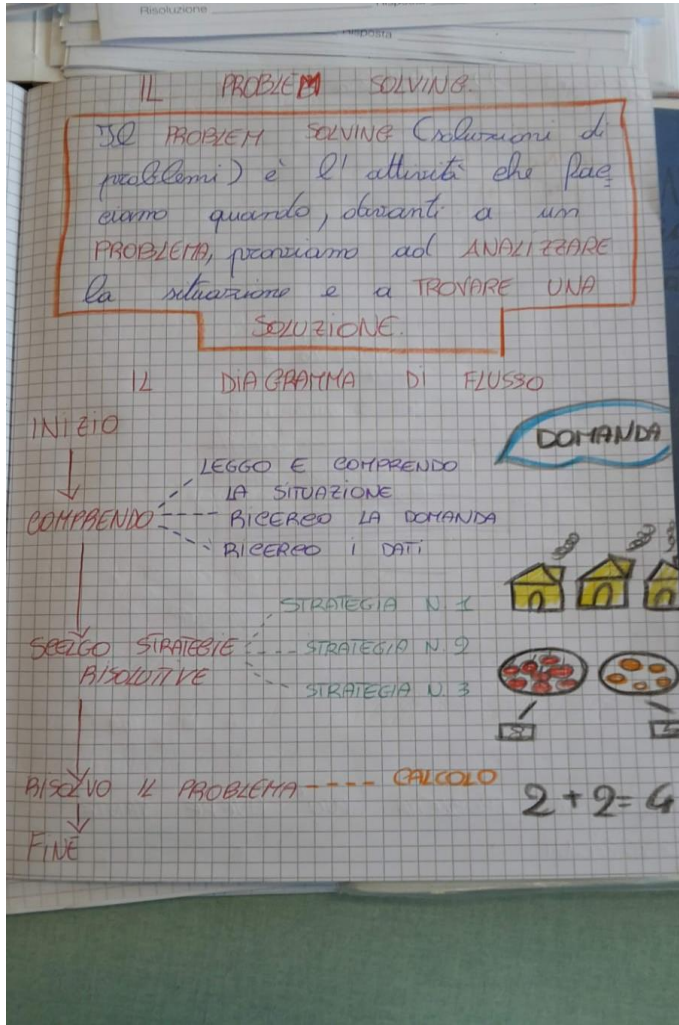 Risoluzione
Risposta
IL PROBLEM SOLVING.
Il PROBLEM SOLVING (soluzioni di
problemi) è l'attività che fac
ciamo quando, davanti a un
PROBLEMA, proviamo ad ANALIZZARE
la situazione e a TROVARE UNA
SOLUZIONE.
IL DIAGRAMMA DI FLUSSO
INIZIO
DOMANDA
LEGGO E COMPRENDO
LA SITUAZIONE
COMPRENDO
RICERCO LA DOMANDA
RICERCO I DATI
STRATEGIA N. 1
SCELGO STRATEGIE
RISOLUTIVE
STRATEGIA N. 2
STRATEGIA N. 3
8
5
RISOLVO IL PROBLEMA
CALCOLO
2+2=4
FINE